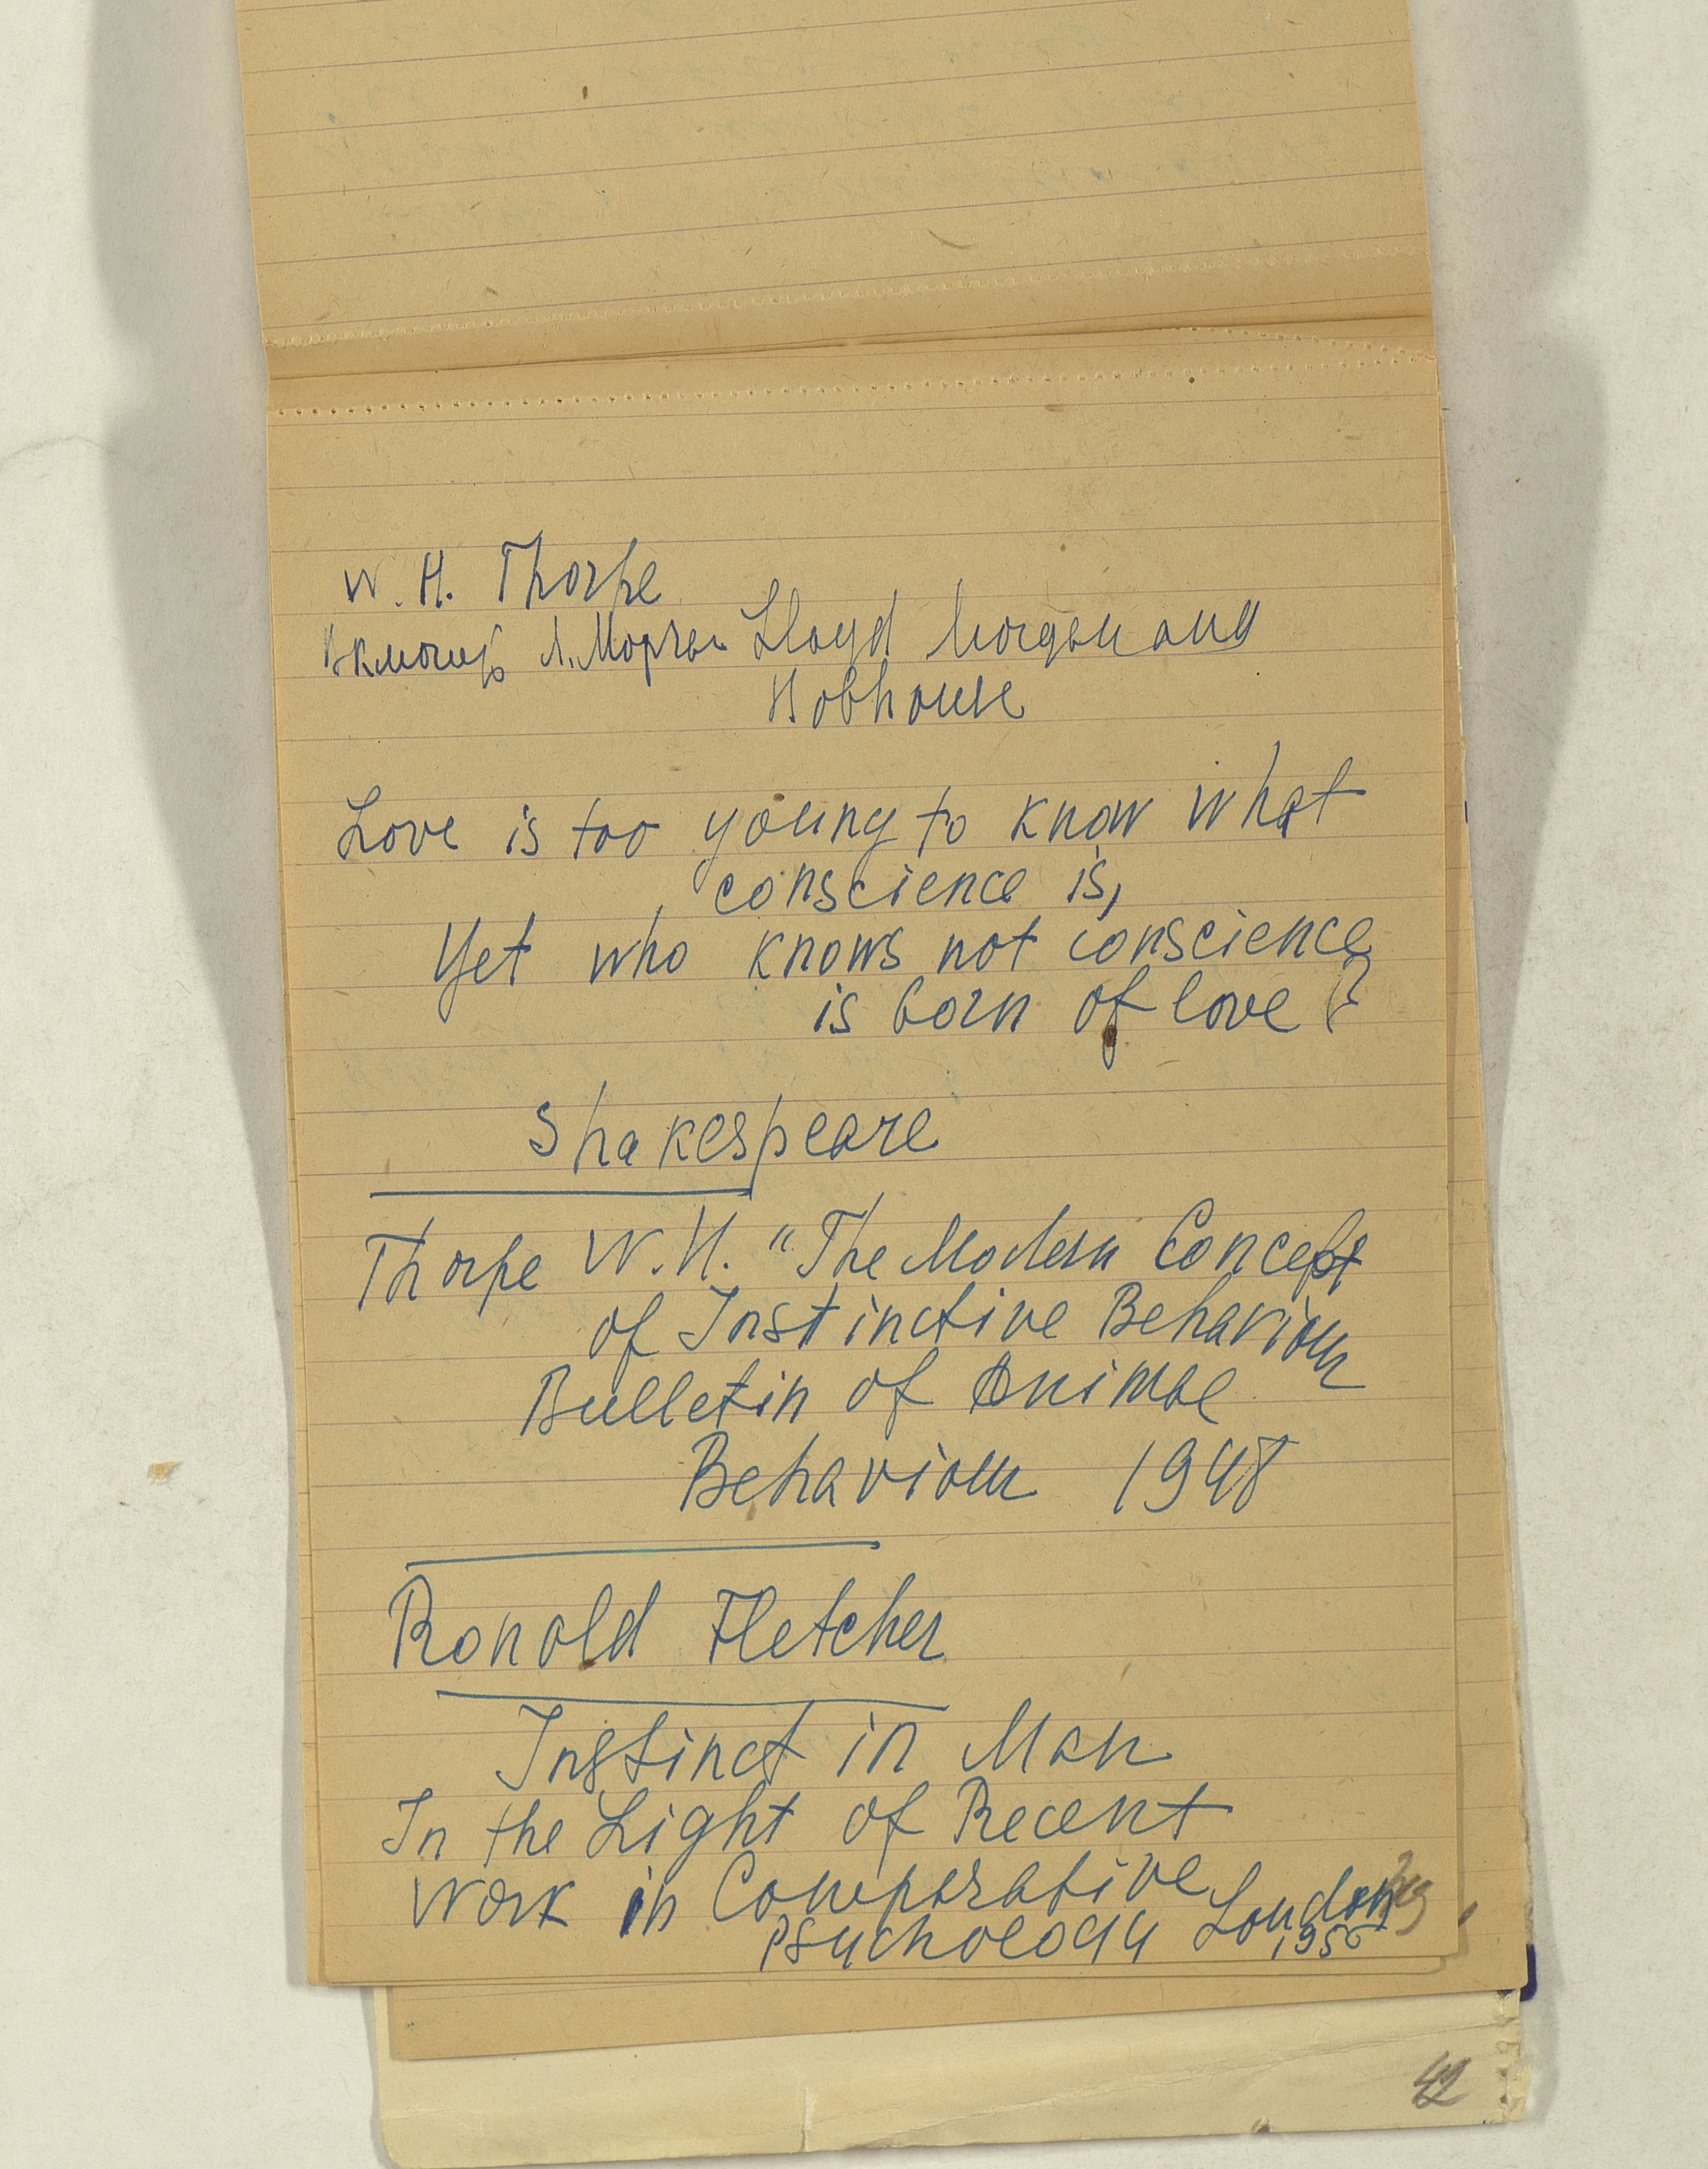 W. H. Thorpe
Включ Л. Морган Lloyd Morgan and
Hobhouse
Love is too young to know what
conscience is,
Yet who knows not conscience
is born of love?
Shakespeare
Thorpe W.H. "The Modern Concept
of Instinctive Behaviour
Bulletin of Animal
Behaviour 1948
Ronald Fletcher
Instinct in Man
In the Light of Recent
Work in Comparative
Psychology London
1956
42